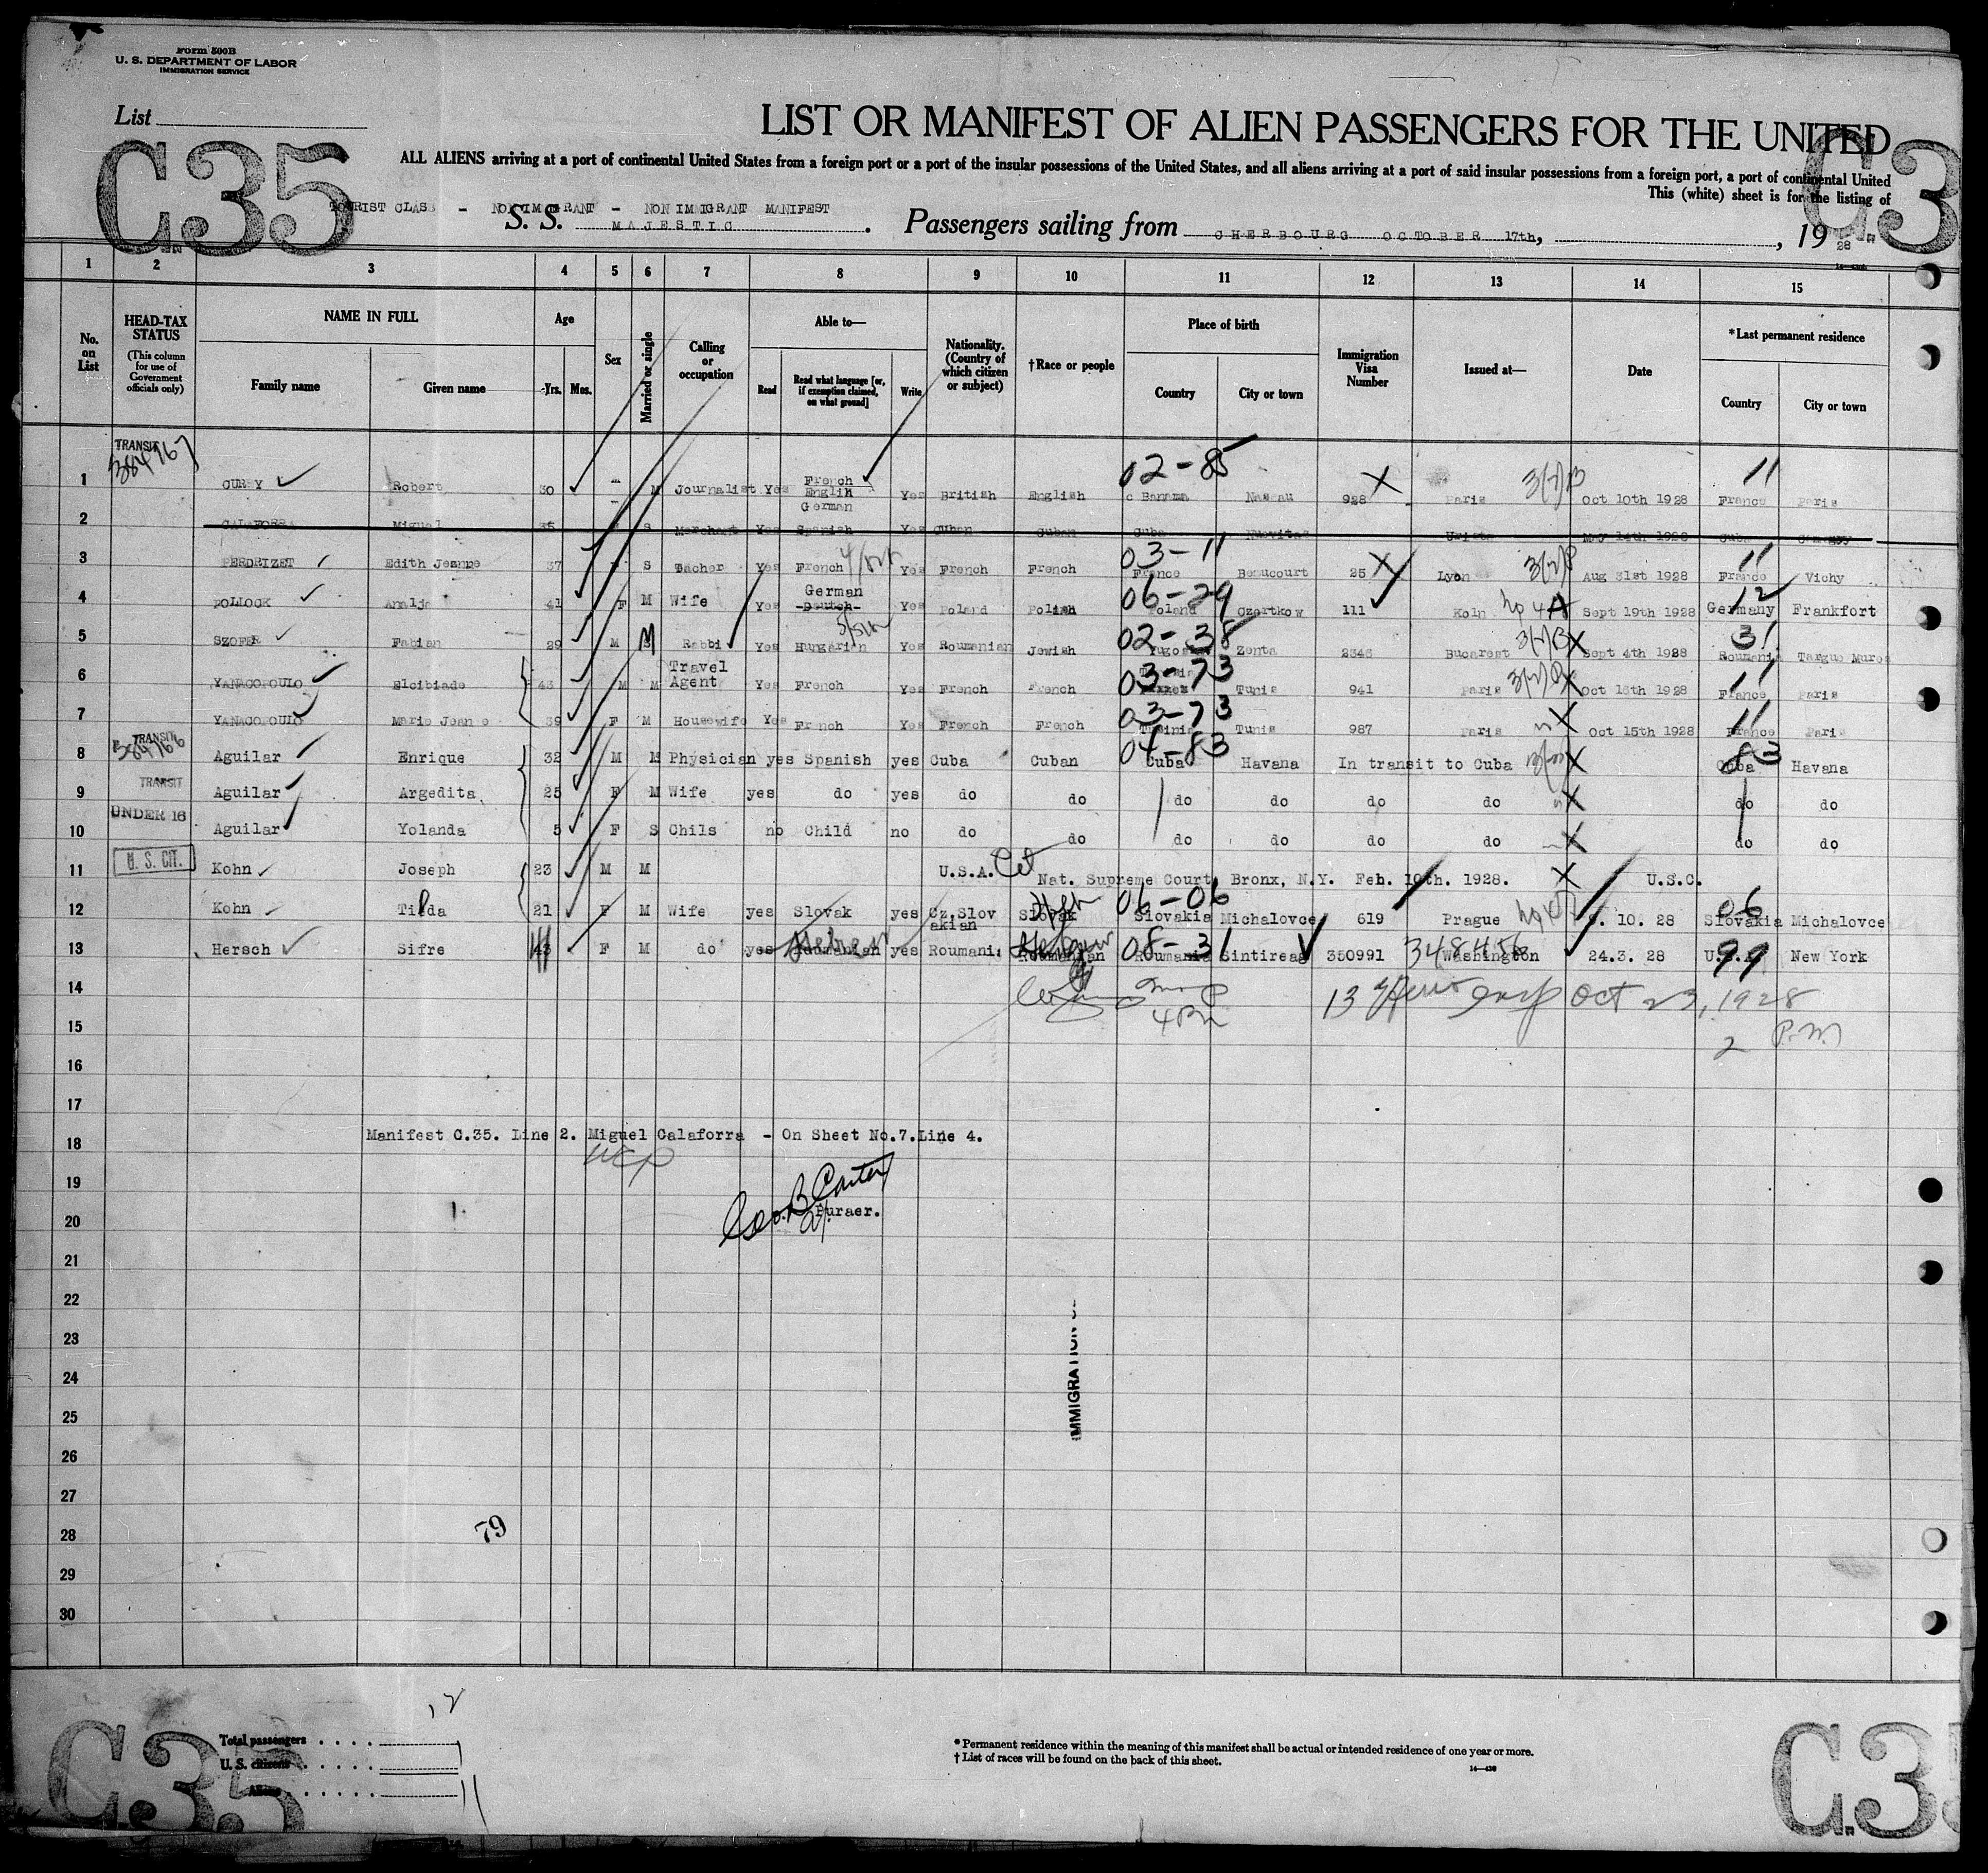 Form 500B
U. S. DEPARTMENT OF LABOR
IMMIGRATION SERVICE
List
C35
C.3
LIST OR MANIFEST OF ALIEN PASSENGERS FOR THE UNITED
ALL ALIENS arriving at a port of continental United States from a foreign port or a port of the insular possessions of the United States, and all aliens arriving at a port of said insular possessions from a foreign port, a port of continental United
This (white) sheet is for the listing of
TOURIST CLASS - NONIMIGRANT - NONIMIGRANT MANIFEST
S. S. MAJESTIC . Passengers sailing from CHERBOURG OCTOBER 17th, , 19 28
1 2 3 4 5 6 7 8 9 10 11 12 13 14 15
No. on List
HEAD-TAX STATUS
(This column for use of Government officials only)
NAME IN FULL
Family name Given name
Age
Yrs. Mos.
Sex
Married or single
Calling or occupation
Able to—
Read Read what language [or, if exemption claimed, on what ground] Write
Nationality. (Country of which citizen or subject)
†Race or people
Place of birth
Country City or town
Immigration Visa Number
Issued at—
Date
*Last permanent residence
Country City or town
TRANSIT
384767
02-85 11
1 CURRY Robert 30 M Journalist Yes French Englih German Yes British English Nassau 928 Paris 3(7)B Oct 10th 1928 France Paris
2 Miguel 35 S Merchant Yes Spanish Yes Cuban Cuban Cuba May 14th 1928 Cuba
03-11 11
3 PERDRIZET Edith Jeanne 37 S Tacher Yes French Yes French French France Beaucourt 25 Lyon Aug 31st 1928 France Vichy
06-29 12
4 POLLOCK Amalje 41 F M Wife Yes German Deutch Yes Poland Polish Poland Czortkow 111 Koln Sept 19th 1928 Germany Frankfort
02-38 31
5 SZOFER Fabian 29 M M Rabbi Yes Hungarian Yes Roumanian Jewish Yugoslav Zenta 2343 Bucarest Sept 4th 1928 Roumania Targue Mures
03-73 11
6 YANACOPOULO Elcibiade 43 M M Travel Agent Yes French Yes French French Tunis 941 Paris Oct 16th 1928 France Paris
03-73 11
7 YANACOPOULO Marie Jeanne 39 F M Housewife Yes French Yes French French Tunis 987 Paris Oct 15th 1928 France Paris
TRANSIT
384766
04-83 83
8 Aguilar Enrique 32 M M Physician yes Spanish yes Cuba Cuban Cuba Havana In transit to Cuba Cuba Havana
TRANSIT
9 Aguilar Argedita 25 F M Wife yes do yes do do do do do do do do
UNDER 16
10 Aguilar Yolanda 5 F S Chils no Child no do do do do do do do do
U. S. CIT.
11 Kohn Joseph 23 M M U.S.A. Cit Nat. Supreme Court, Bronx, N.Y. Feb. 10th. 1928. U.S.C.
06-06 06
12 Kohn Tilda 21 F M Wife yes Slovak yes Cz.Slov akian Slovak Slovakia Michalovce 619 Prague 9. 10. 28 Slovakia Michalovce
08-31 348456 99
13 Hersch Sifre 43 F M do yes Roumanian Hebrew yes Roumania Roumanian Hebrew Roumania Sintireag 350991 Washington 24.3. 28 New York
14 13 Oct 23, 1928
15 4 2 P.M.
16
17
18 Manifest C.35. Line 2. Miguel Calaforra - On Sheet No.7.Line 4.
19
Geo. B Carter
20 Puraer.
21
22
23
24
IMMIGRATION
25
26
27
28 79
29
30
12
Total passengers
U. S. citizens
Aliens 11
*Permanent residence within the meaning of this manifest shall be actual or intended residence of one year or more.
†List of races will be found on the back of this sheet.
14—430
C.35
C.3